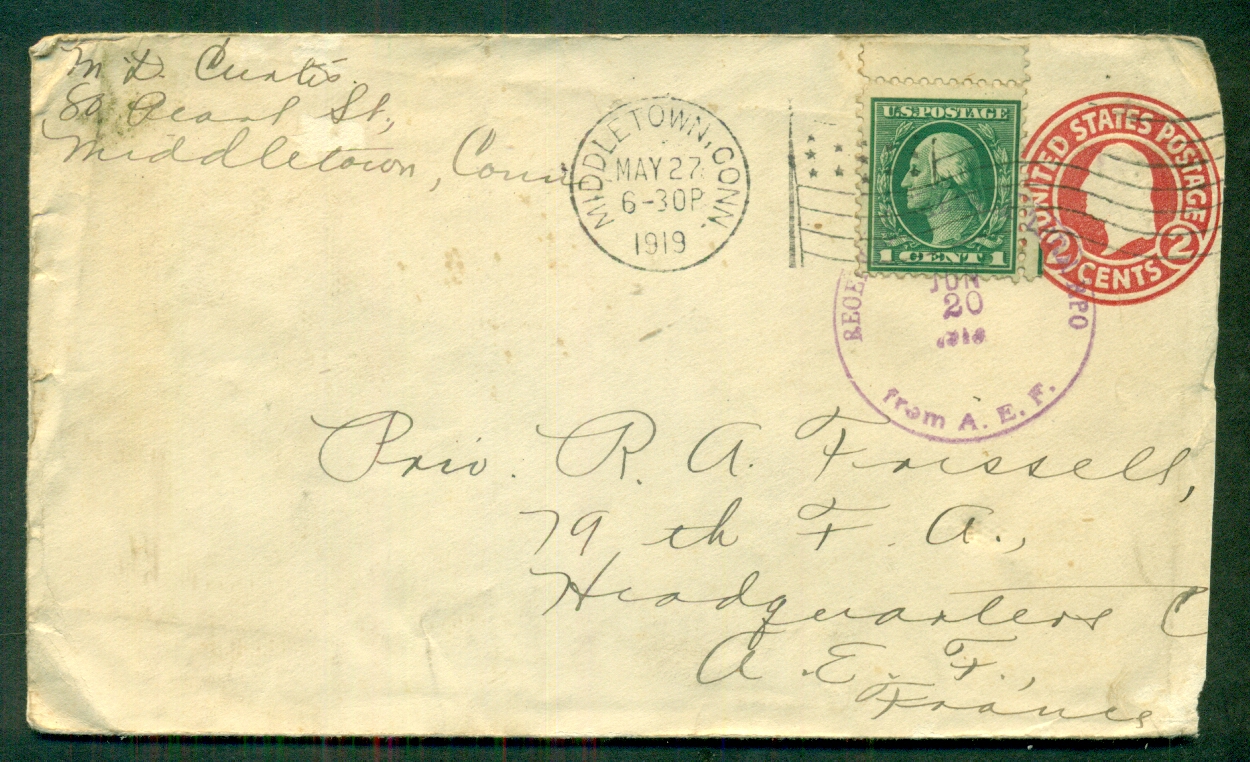 M. D. Curtis.
80 Pearl St.,
Middletown, Conn
MIDDLETOWN, CONN.
MAY 27
6-30P
1919
U.S. POSTAGE
1 CENT 1
UNITED STATES POSTAGE
2 CENTS 2
JUN
20
from A. E. F.
Priv. R. A. Frissell,
79 th F. A.,
Headquarters C
A. E. F.,
France